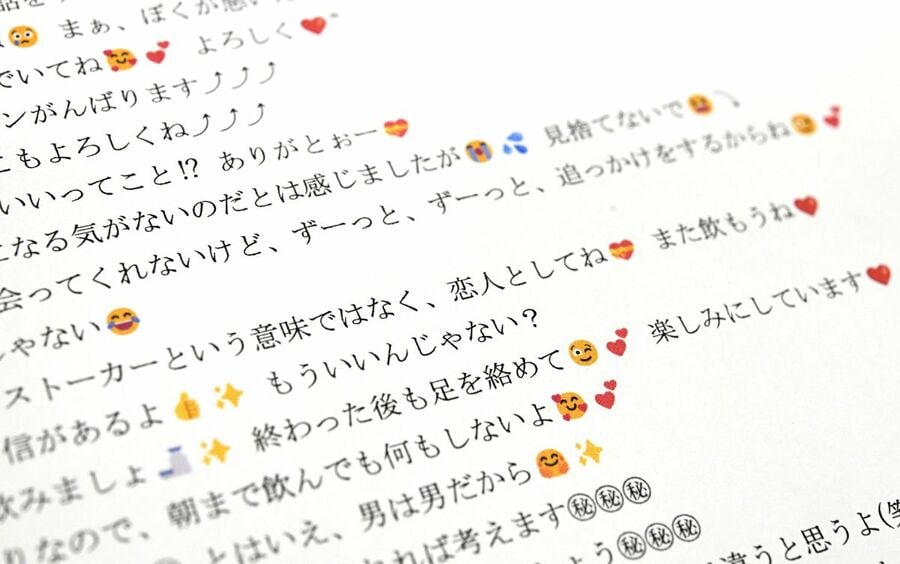 まぁ、ぼくが悪い
でいてね🥰💕 よろしく❤️
ンがんばります⤴⤴⤴
こもよろしくね⤴⤴⤴
いいってこと⁉ ありがとぉー💝
になる気がないのだとは感じましたが😭💦 見捨てないで😫
会ってくれないけど、ずーっと、ずーっと、追っかけをするからね😘💕
じゃない😂
ストーカーという意味ではなく、恋人としてね💝 また飲もうね❤️
信があるよ👍✨ もういいんじゃない？
飲みましょ🍶✨ 終わった後も足を絡めて😉💕 楽しみにしています❤️
りなので、朝まで飲んでも何もしないよ🥰💕
とはいえ、男は男だから🤗✨
れば考えます㊙㊙㊙
よう㊙㊙㊙
違うと思うよ(笑